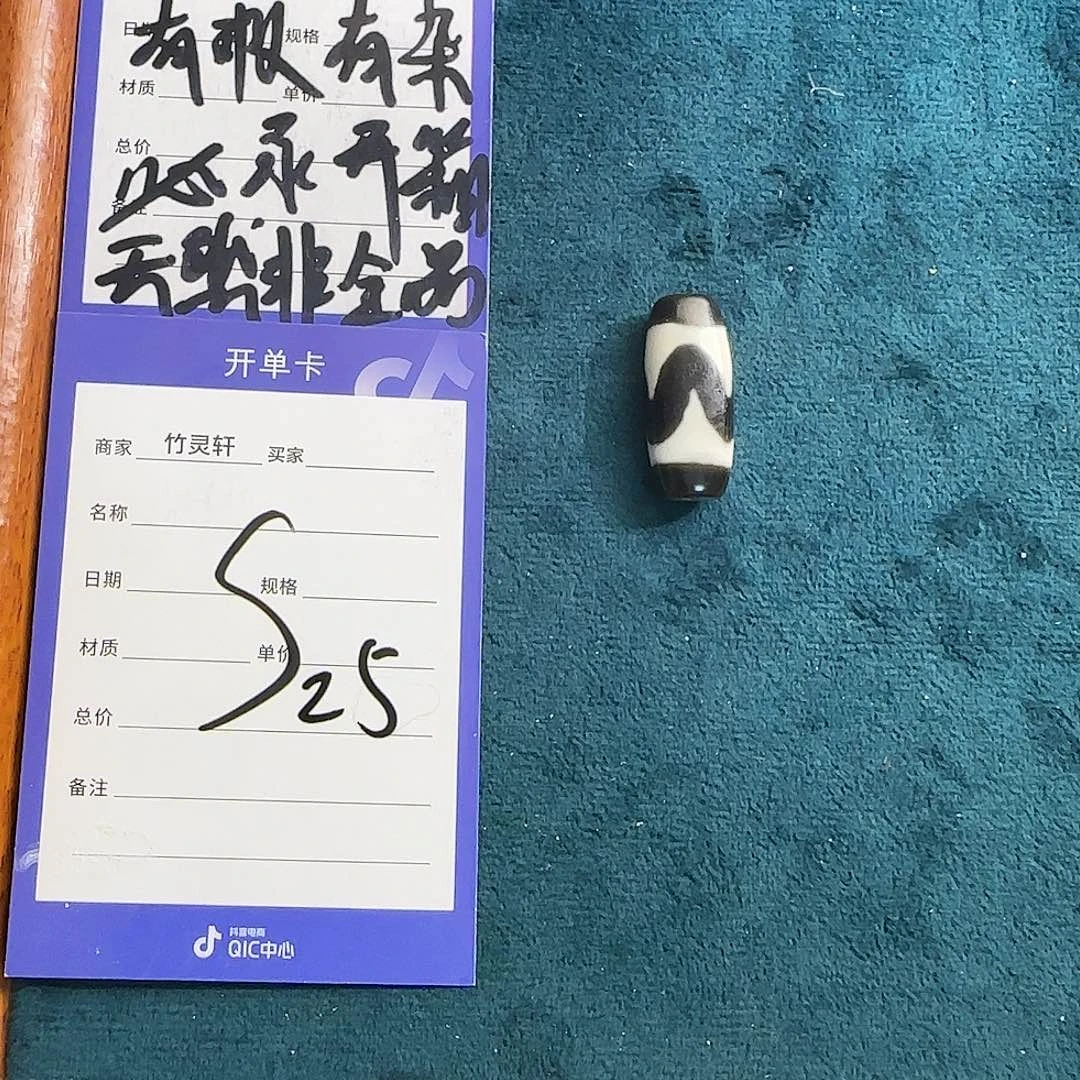 日期 规格
有根有杂
材质 单价
总价
必 开
备注
天珠非全品
开单卡
商家 竹灵轩 买家
名称
日期 规格
材质 单价
S25
总价
备注
抖音电商
QIC中心